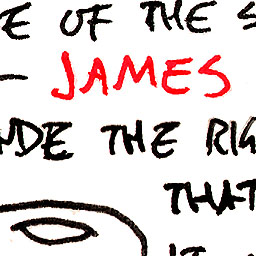 E OF THE S
— JAMES
NDE THE RIG
THAT